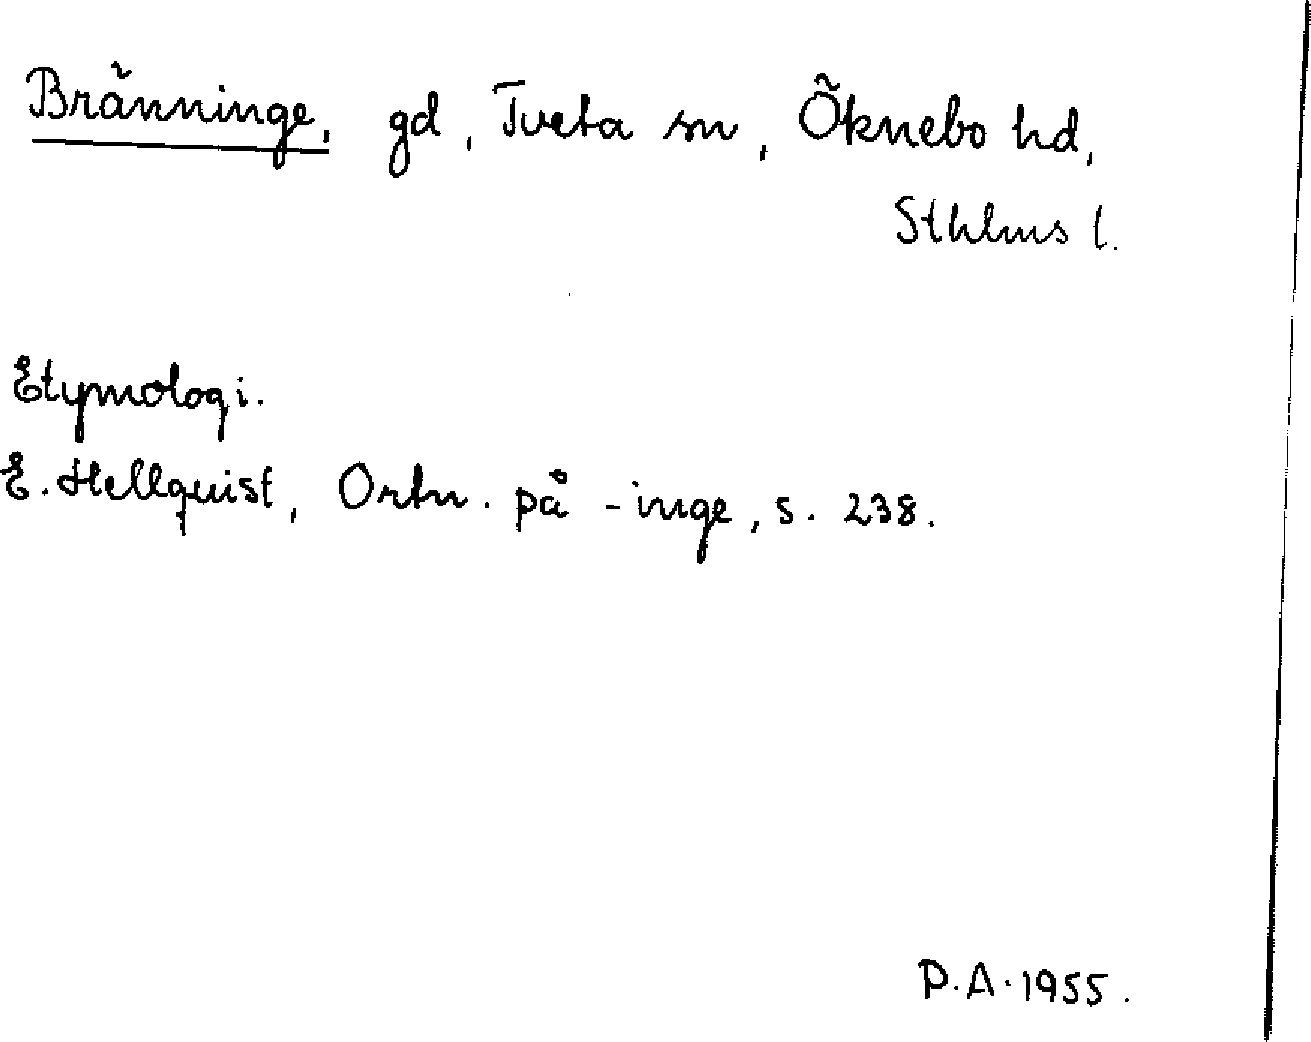 Bränninge, gd, Tveta sn, Öknebo hd,
Sthlms l.
Etymologi.
E. Hellquist, Ortn. på -inge, s. 238.
P.A. 1955.